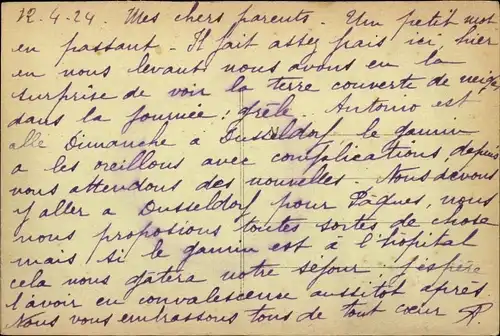 12.4.24. Mes chers parents. Un petit mot
en passant. Il fait assez frais ici, hier
en nous levant nous avons eu la
surprise de voir la terre couverte de neige,
dans la journée, grêle. Antonio est
allé Dimanche à Dusseldorf le gamin
a les oreillons avec complications, depuis
nous attendons des nouvelles. Nous devons
y aller a Dusseldorf pour Pâques, nous
nous proposions toutes sortes de chose
mais si le gamin est à l'hôpital
cela nous gâtera notre séjour. J'espère
l'avoir en convalescense aussitôt après.
Nous vous embrassons tous de tout cœur